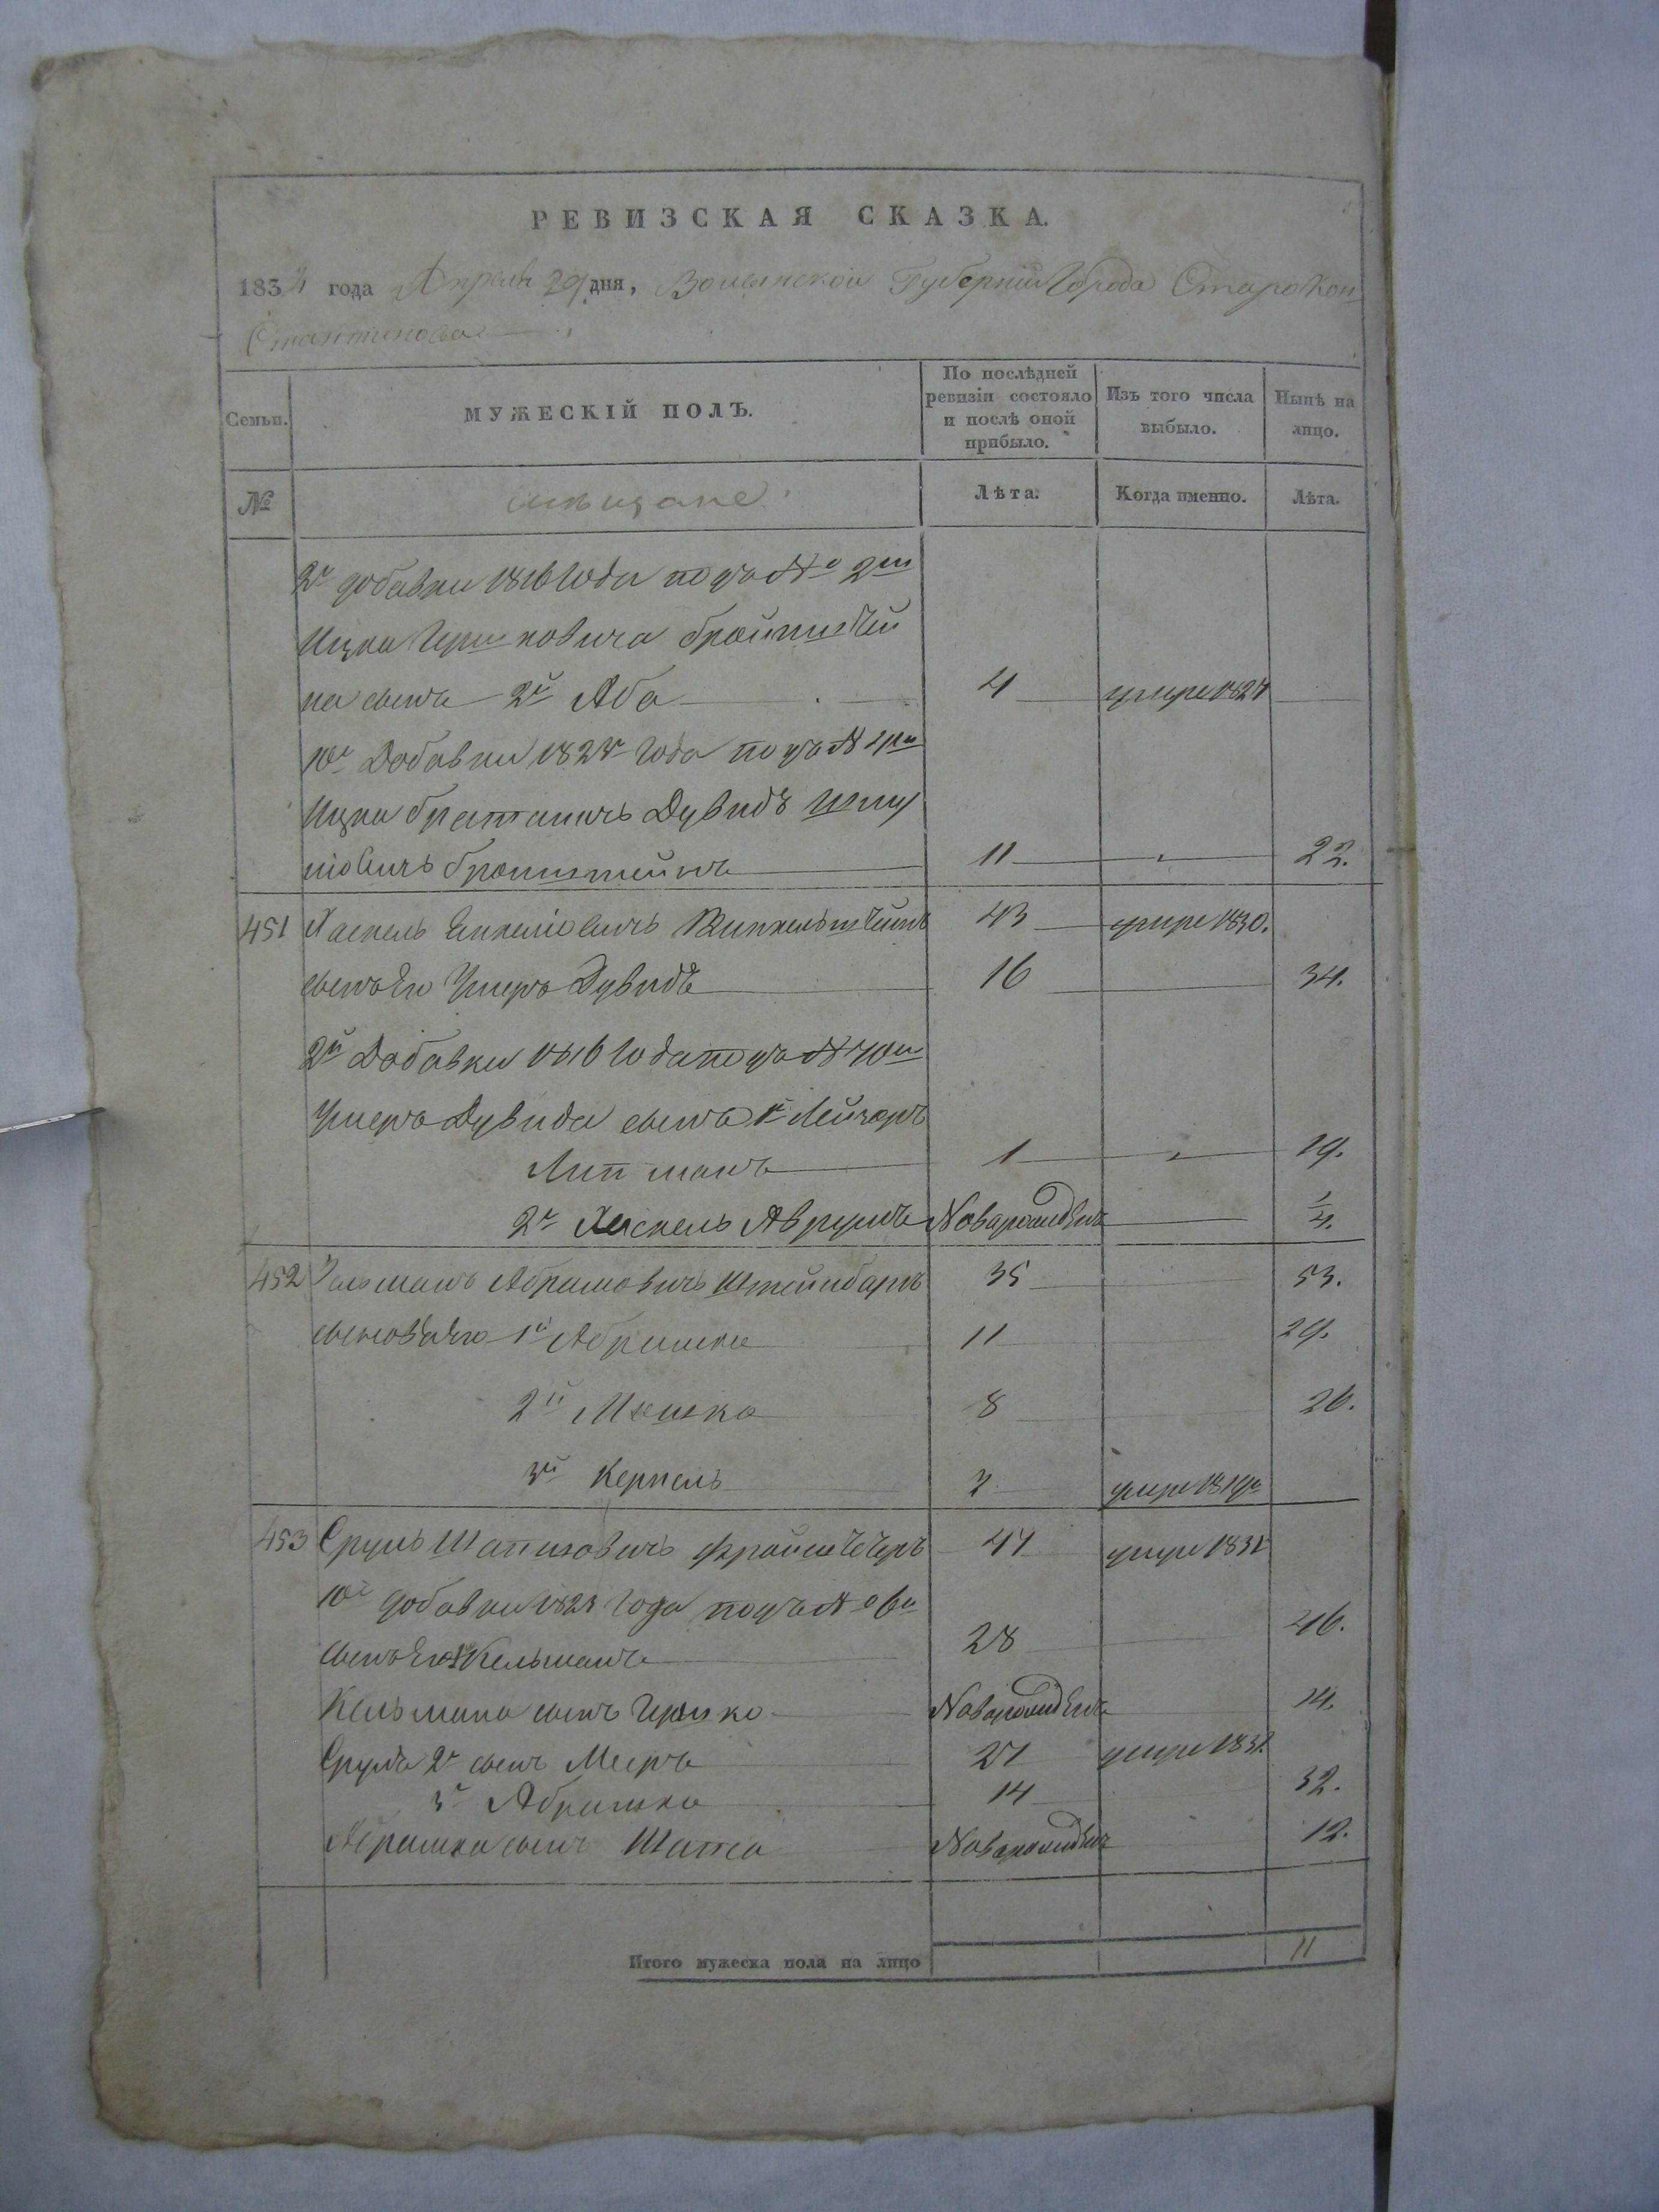 РЕВИЗСКАЯ СКАЗКА.
1834 года Апреля 29 дня, Волынской Губернии Города Старокон
стантинова
Семьи. МУЖЕСКІЙ ПОЛЪ. По послѣдней ревизіи состояло и послѣ оной прибыло. Изъ того числа выбыло. Нынѣ на лицо.
№ мѣщане Лѣта. Когда именно. Лѣта.
2й добавки 1816 года подъ №
Ицки Гершковича бройштей
на сынъ 2й Аба 4 умре
10й Добавки года подъ №
Ицки братаничь Дувидъ Шму
лiовичъ бронштейнъ 11 22.
451 Хаскель Винкельштейнъ 43 умре 1830.
сынъ Его Умеръ Дувидъ 16 34.
2й Добавки 1816 года подъ №
Умеръ Дувида сынъ 1й Лейзоръ
Липманъ 1 19.
2й Хаскель Аврумъ Новорожденъ
452 Зельманъ Абрамовичъ Штейнбаргъ 35 53.
сыновья его 1й Абрамко 11 29.
2й Мошко 8 26.
3й Керпель умре
453 Сруль Шапсiовичъ 47 умре
10й добавки года подъ №
сынъ Его 1й Кельманъ 28 46.
Кельмана сынъ Гершко Новорожденъ 14.
Сруля 2й сынъ Мееръ умре
3й Абрамко 14 32.
Абрамка сынъ Шапса Новорожденъ 12.
Итого мужеска пола на лицо 11